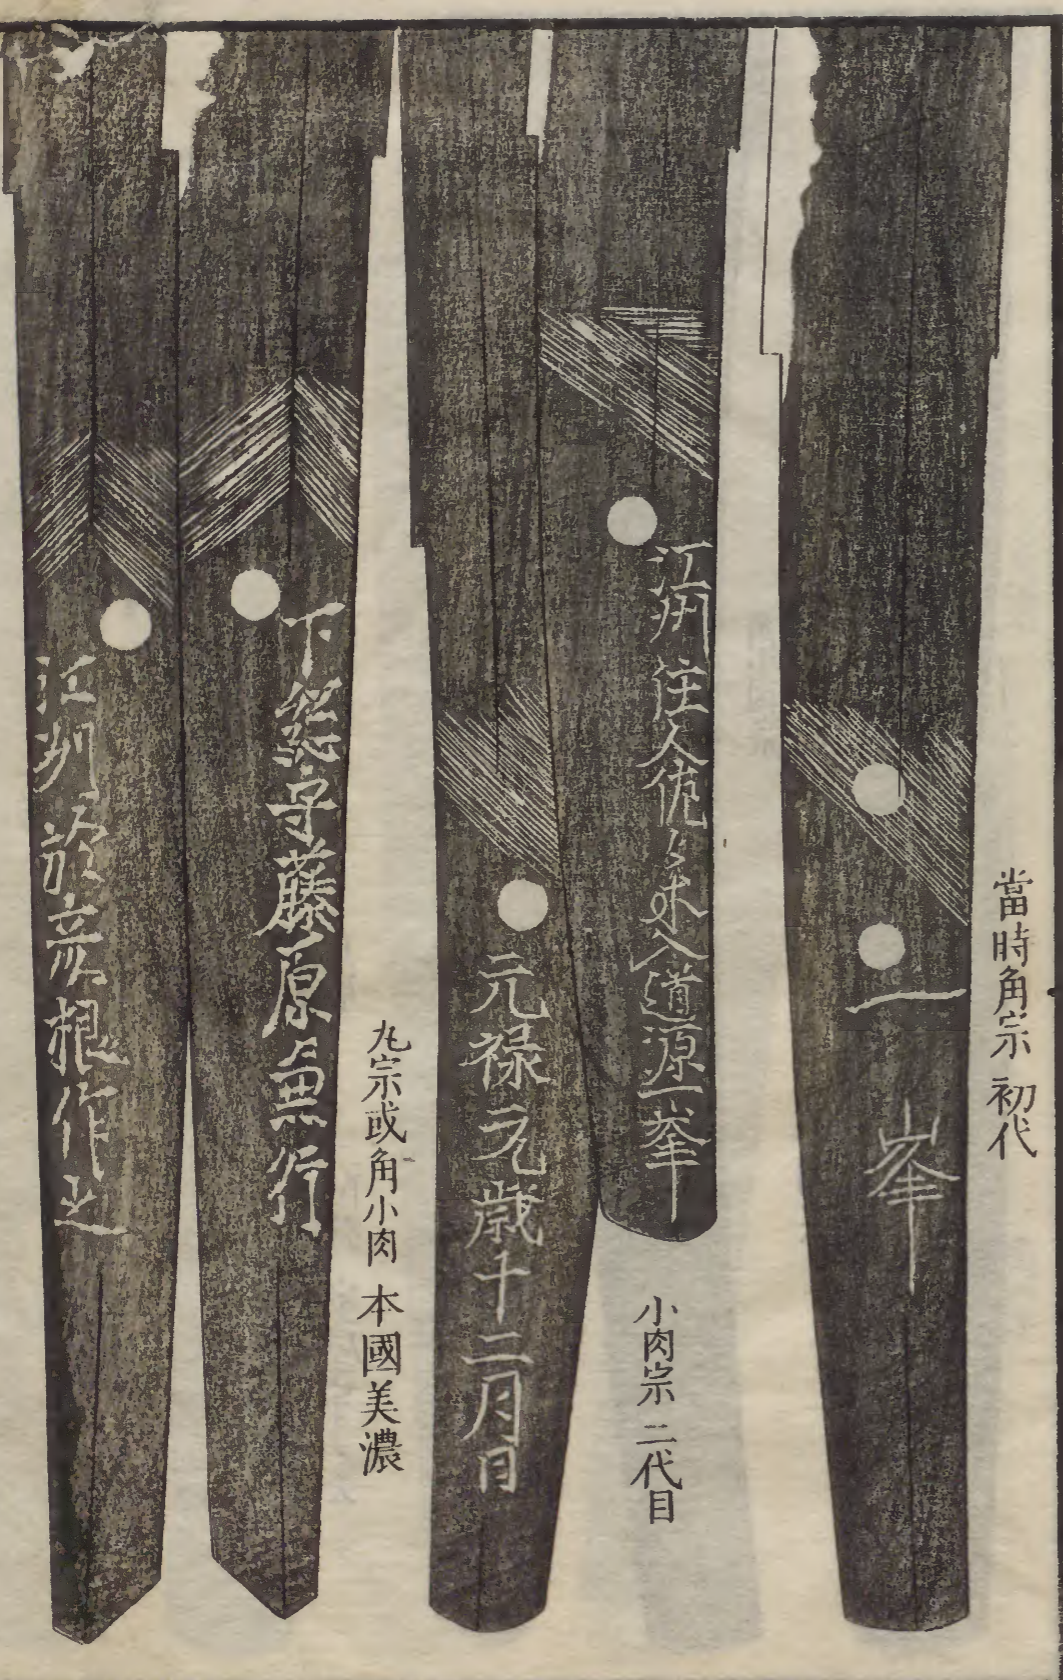 當時角宗 初代
一峯
江州住人佐々木入道源一峯
小肉宗 二代目
元禄元歳十二月日
丸宗或角小肉 本國美濃
下総守藤原兼行
江州於彦根作之